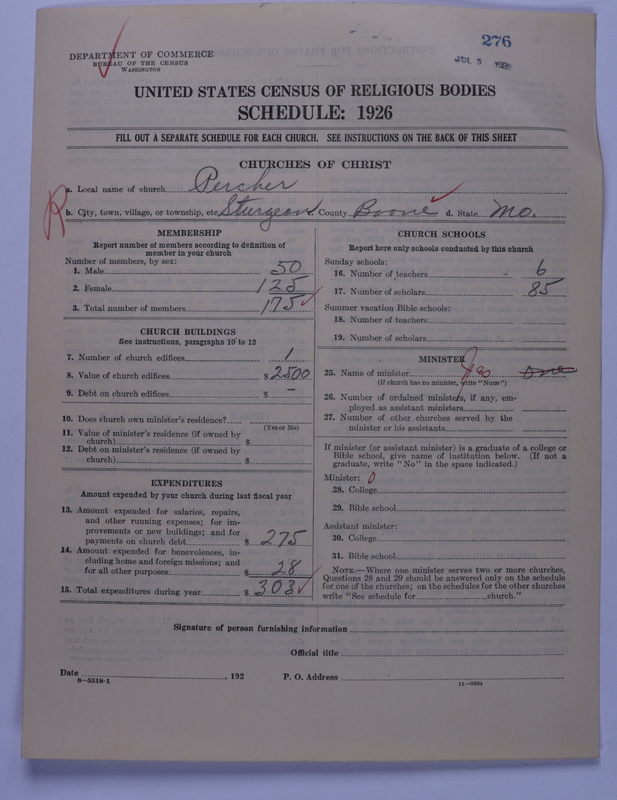 276
DEPARTMENT OF COMMERCE
BUREAU OF THE CENSUS
WASHINGTON
JUL 3
UNITED STATES CENSUS OF RELIGIOUS BODIES
SCHEDULE: 1926
FILL OUT A SEPARATE SCHEDULE FOR EACH CHURCH. SEE INSTRUCTIONS ON THE BACK OF THIS SHEET
CHURCHES OF CHRIST
a. Local name of church Percher
R
b. City, town, village, or township, etc. Sturgeon c. County Boone d. State Mo.
MEMBERSHIP
Report number of members according to definition of
member in your church
Number of members, by sex:
1. Male 50
2. Female 125
3. Total number of members 175
CHURCH BUILDINGS
See instructions, paragraphs 10 to 12
7. Number of church edifices 1
8. Value of church edifices $ 2500
9. Debt on church edifices $ –
10. Does church own minister's residence?
(Yes or No)
11. Value of minister's residence (if owned by
church) $
12. Debt on minister's residence (if owned by
church) $
EXPENDITURES
Amount expended by your church during last fiscal year
13. Amount expended for salaries, repairs,
and other running expenses; for im-
provements or new buildings; and for
payments on church debt $ 275
14. Amount expended for benevolences, in-
cluding home and foreign missions; and
for all other purposes $ 28
15. Total expenditures during year $ 303
CHURCH SCHOOLS
Report here only schools conducted by this church
Sunday schools:
16. Number of teachers 6
17. Number of scholars 85
Summer vacation Bible schools:
18. Number of teachers
19. Number of scholars
MINISTER
25. Name of minister One
(If church has no minister, write "None")
26. Number of ordained ministers, if any, em-
ployed as assistant ministers
27. Number of other churches served by the
minister or his assistants
If minister (or assistant minister) is a graduate of a college or
Bible school, give name of institution below. (If not a
graduate, write "No" in the space indicated.)
Minister: 0
28. College
29. Bible school
Assistant minister:
30. College
31. Bible school
NOTE.—Where one minister serves two or more churches,
Questions 28 and 29 should be answered only on the schedule
for one of the churches; on the schedules for the other churches
write "See schedule for church."
Signature of person furnishing information
Official title
Date , 192 P. O. Address
8—5518-1